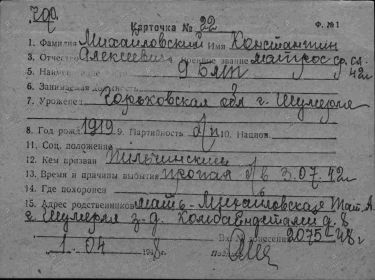 709.
Карточка № 22 Ф. №1
1. Фамилия Михайловский Имя Константин
2. Отчество Алексеевич Военное звание матрос ср. сл.
42г.
5. 9 БМП
6. Занимаемая
7. Уроженец Горьковская обл г. Шумерля
8. Год рожд. 1919 9. Партийность б/п 10. Национ.
11. Соц. положение
12. Кем призван Пильнинским
13. Время и причины выбытия пропал б/в 3.07.42г.
14. Где похоронен
15. Адрес родственников мать - Михайловская Тат. А.
г. Шумерля з-д Комбавнодеталей д. 8
Вх. № 2075с-48г
1. 04 1948 г.